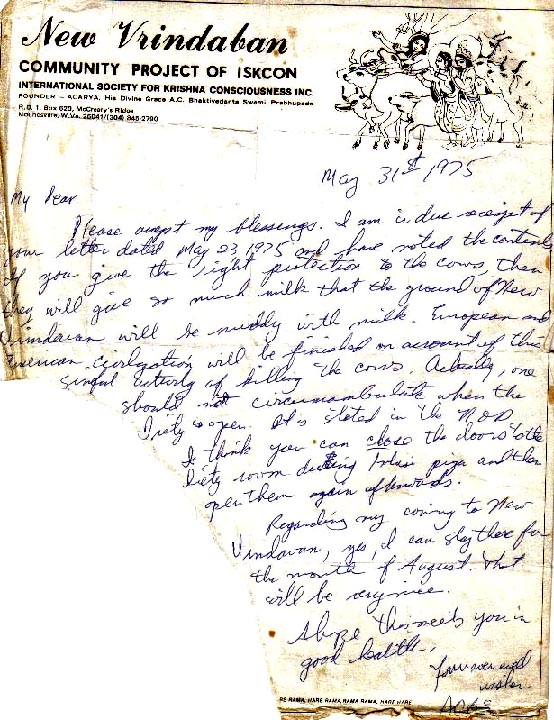 New Vrindaban
COMMUNITY PROJECT OF ISKCON
INTERNATIONAL SOCIETY FOR KRISHNA CONSCIOUSNESS INC
FOUNDER — ACARYA, His Divine Grace A.C. Bhaktivedanta Swami Prabhupada
R.D. 1, Box 620, McCreary's Ridge
Moundsville, W.Va. 26041/(304) 845-2790
May 31st 1975
My Dear
Please accept my blessings. I am in due receipt of
your letter dated May 23, 1975 and have noted the contents
If you give the right protection to the cows, then
they will give so much milk that the ground of New
Vrindavan will be muddy with milk. European and
American civilization will be finished on account of this
sinful activity of killing the cows. Actually, one
should not circumambulate when the
Diety is open. It is stated in the N.O.D
I think you can close the doors to the
Diety room during Tulsi puja and then
open them again afterwards.
Regarding my coming to New
Vrindavan, yes, I can stay there for
the month of August. That
will be very nice.
I hope this meets you in
good health.
Your ever well
wisher
RE RAMA, HARE RAMA, RAMA RAMA, HARE HARE